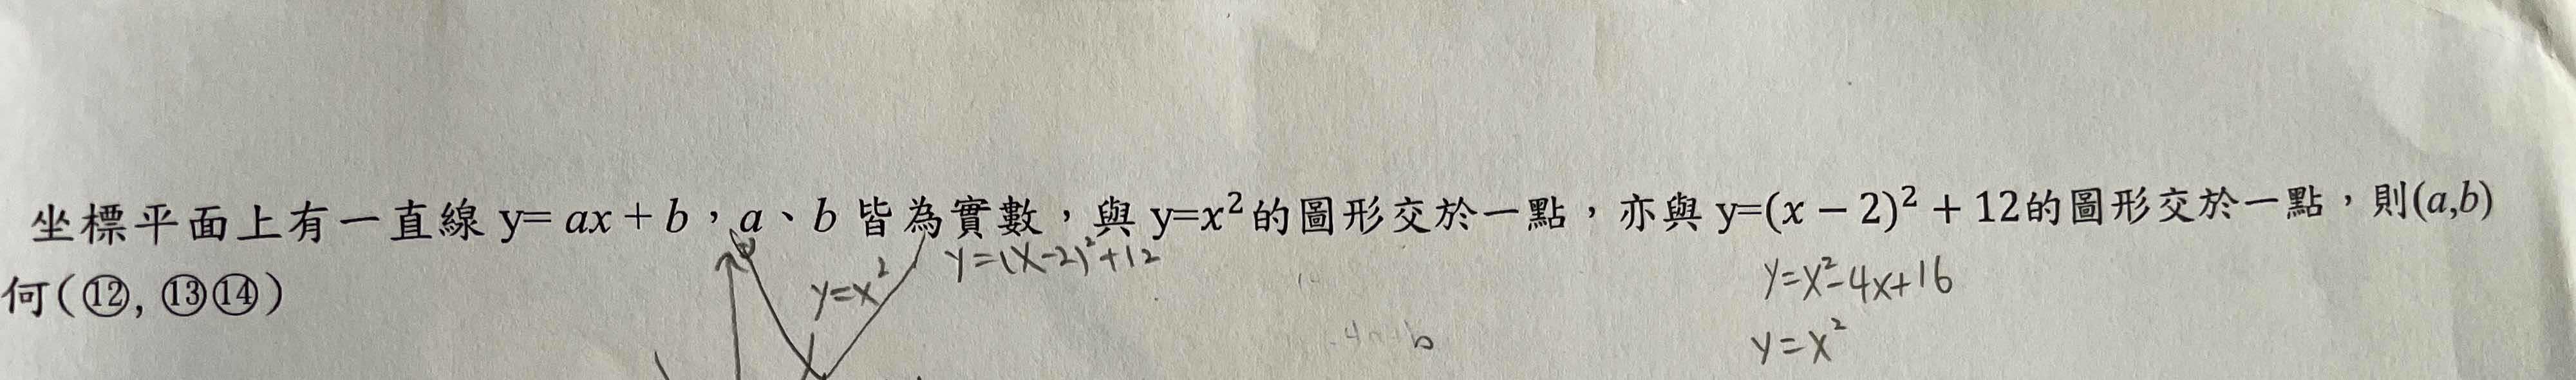 坐標平面上有一直線 y= ax + b，a、b 皆為實數，與 y=x²的圖形交於一點，亦與 y=(x − 2)² + 12的圖形交於一點，則(a,b)
何(⑫, ⑬⑭)
y=x²
y=(x-2)²+12
y=x²-4x+16
y=x²